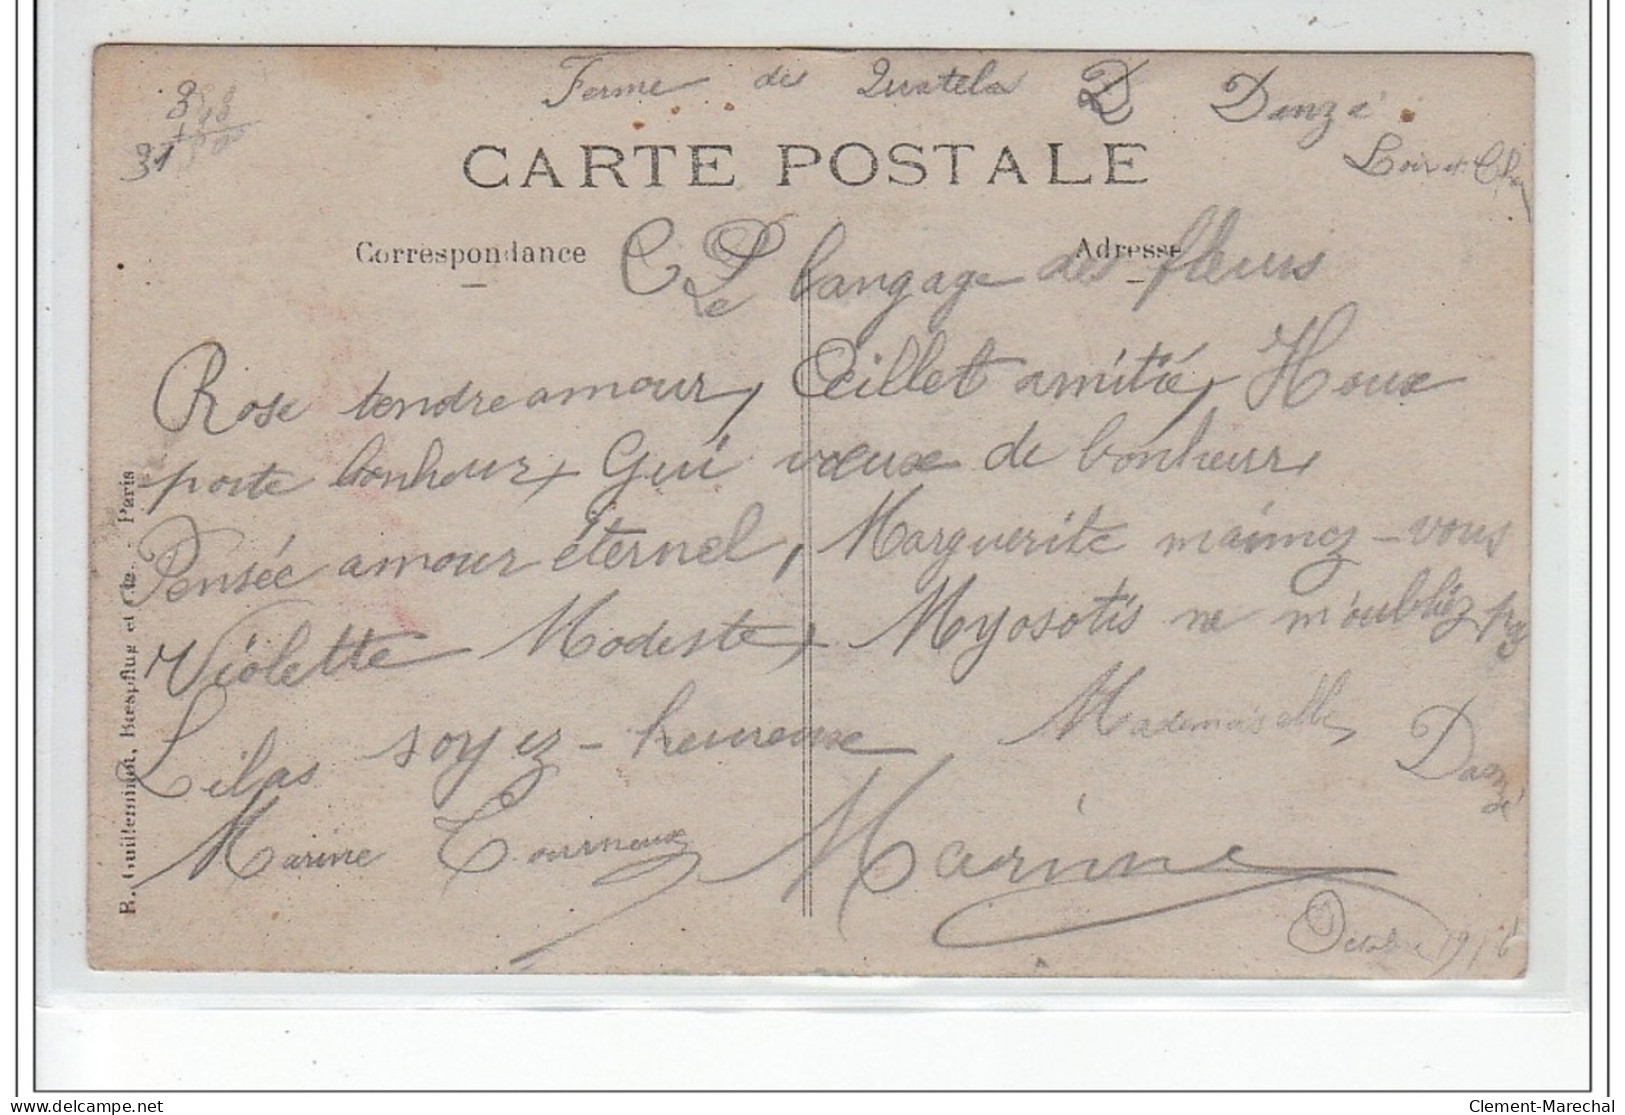 Ferme des Danzé
Loir et Cher
CARTE POSTALE
Correspondance
Adresse
Le langage des fleurs
Rose tendre amour, Oeillet amitié, Houx
porte bonheur, Gui voeux de bonheur,
Pensée amour éternel, Marguerite m'aimez-vous
Violette Modeste, Myosotis ne m'oubliez pas
Lilas soyez-heureuse Mademoiselle
Danzé
Marine Tourneux
Marine
Octobre 1916
R. Guilleminot, Bœspflug et Cie. - Paris
Clement-Marechal
delcampe.net